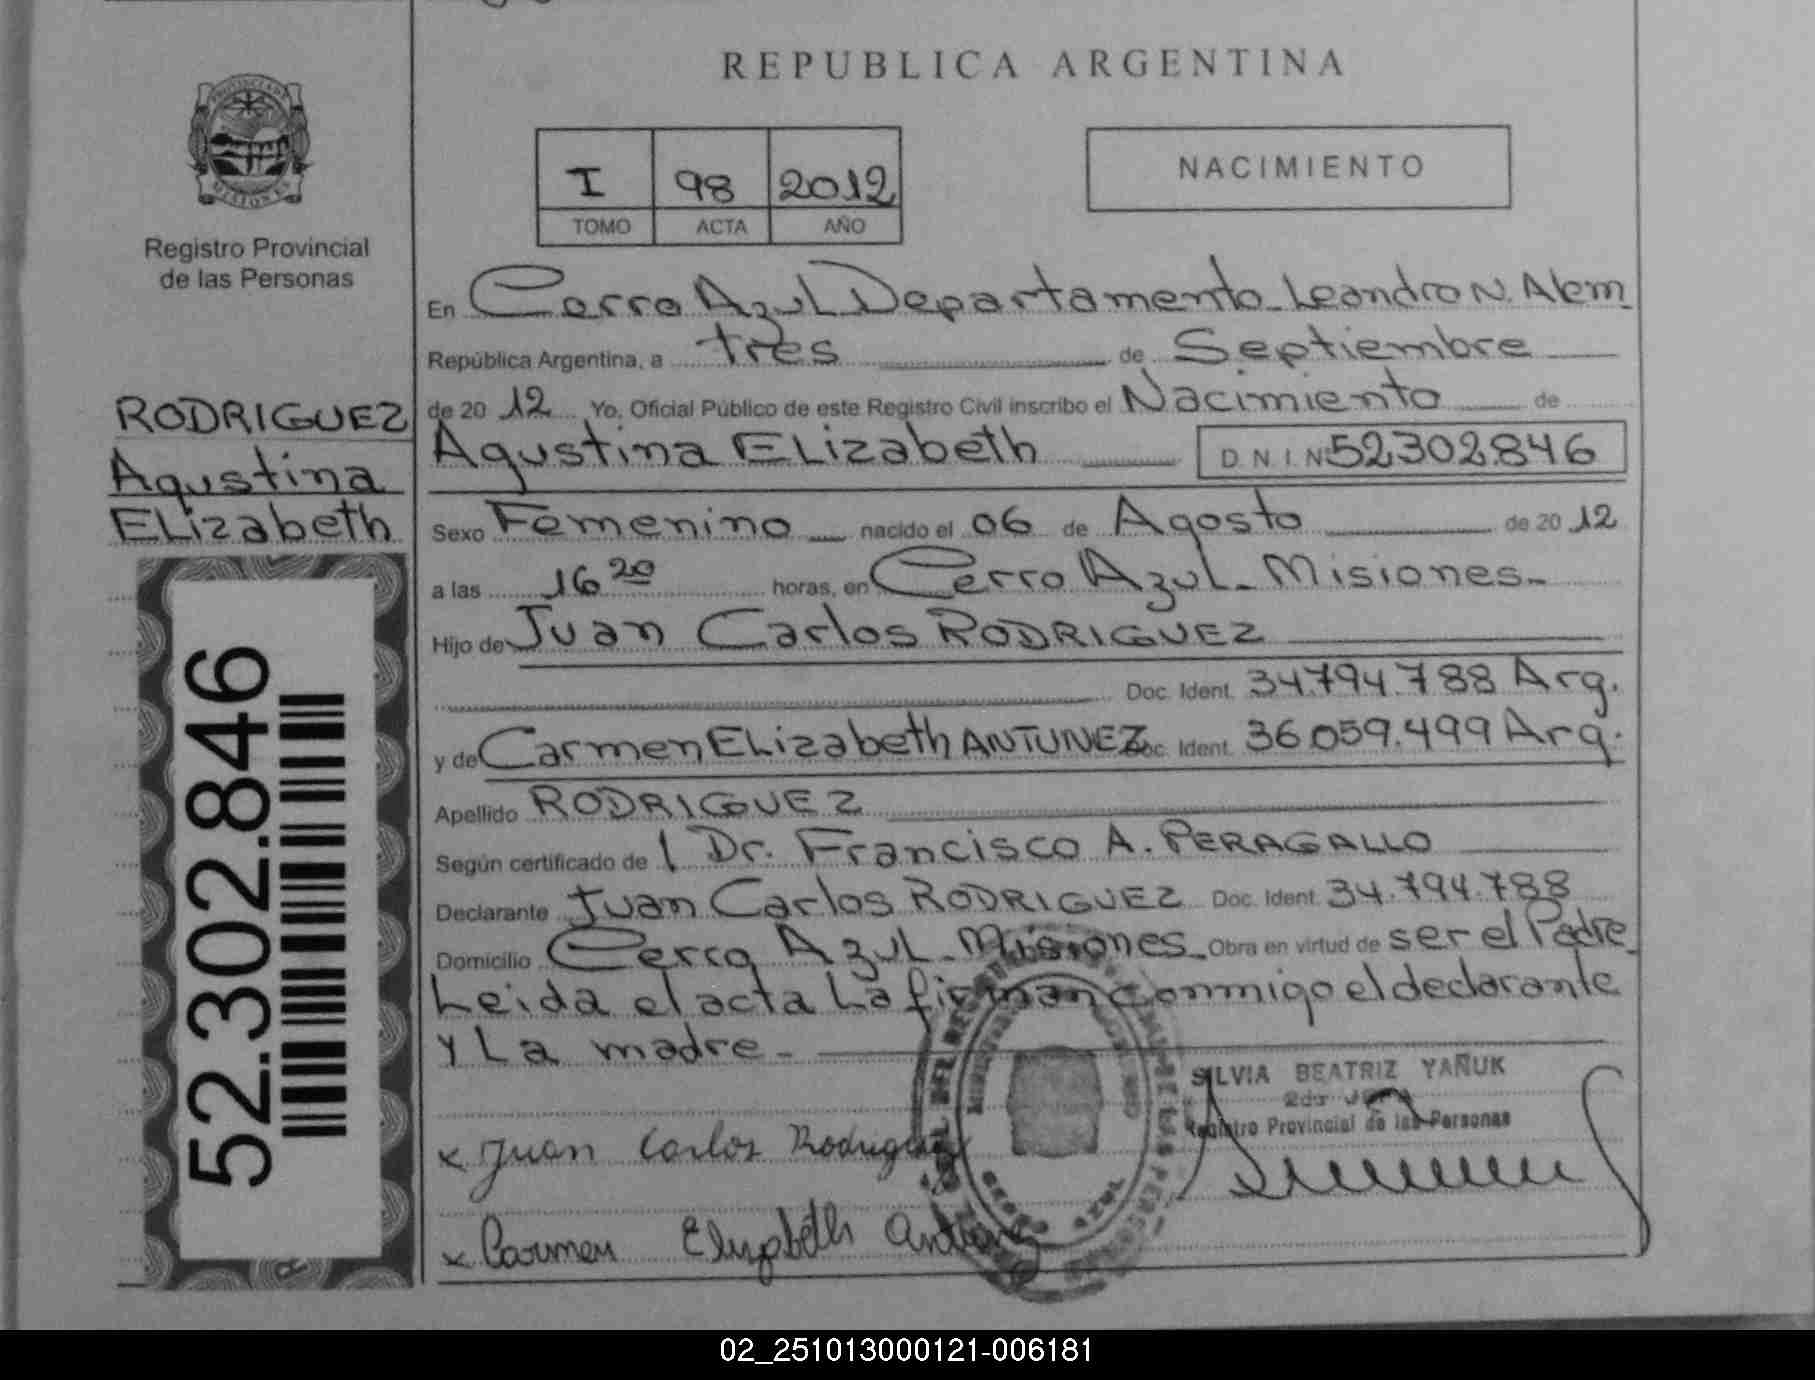 REPUBLICA ARGENTINA
I 98 2012
TOMO ACTA AÑO
NACIMIENTO
Registro Provincial
de las Personas
RODRIGUEZ
Agustina
ELizabeth
52.302.846
En Cerro Azul Departamento Leandro N. Alem
República Argentina, a tres de Septiembre
de 20 12 Yo, Oficial Público de este Registro Civil inscribo el Nacimiento de
Agustina ELizabeth D N I N 52302846
Sexo Femenino nacido el 06 de Agosto de 20 12
a las 16 20 horas, en Cerro Azul - Misiones -
Hijo de Juan Carlos RODRIGUEZ
Doc. Ident. 34.794.788 Arg.
y de Carmen ELizabeth ANTUNEZ Doc. Ident. 36.059.499 Arg.
Apellido RODRIGUEZ
Según certificado de Dr. Francisco A. PERAGALLO
Declarante Juan Carlos RODRIGUEZ Doc. Ident. 34.794.788
Domicilio Cerro Azul - Misiones - Obra en virtud de ser el Padre -
Leida el acta La firman conmigo el declarante
y La madre -
SILVIA BEATRIZ YAÑUK
Registro Provincial de las Personas
x Juan Carlos Rodriguez
x Carmen Elizabeth Antunez
02_251013000121-006181